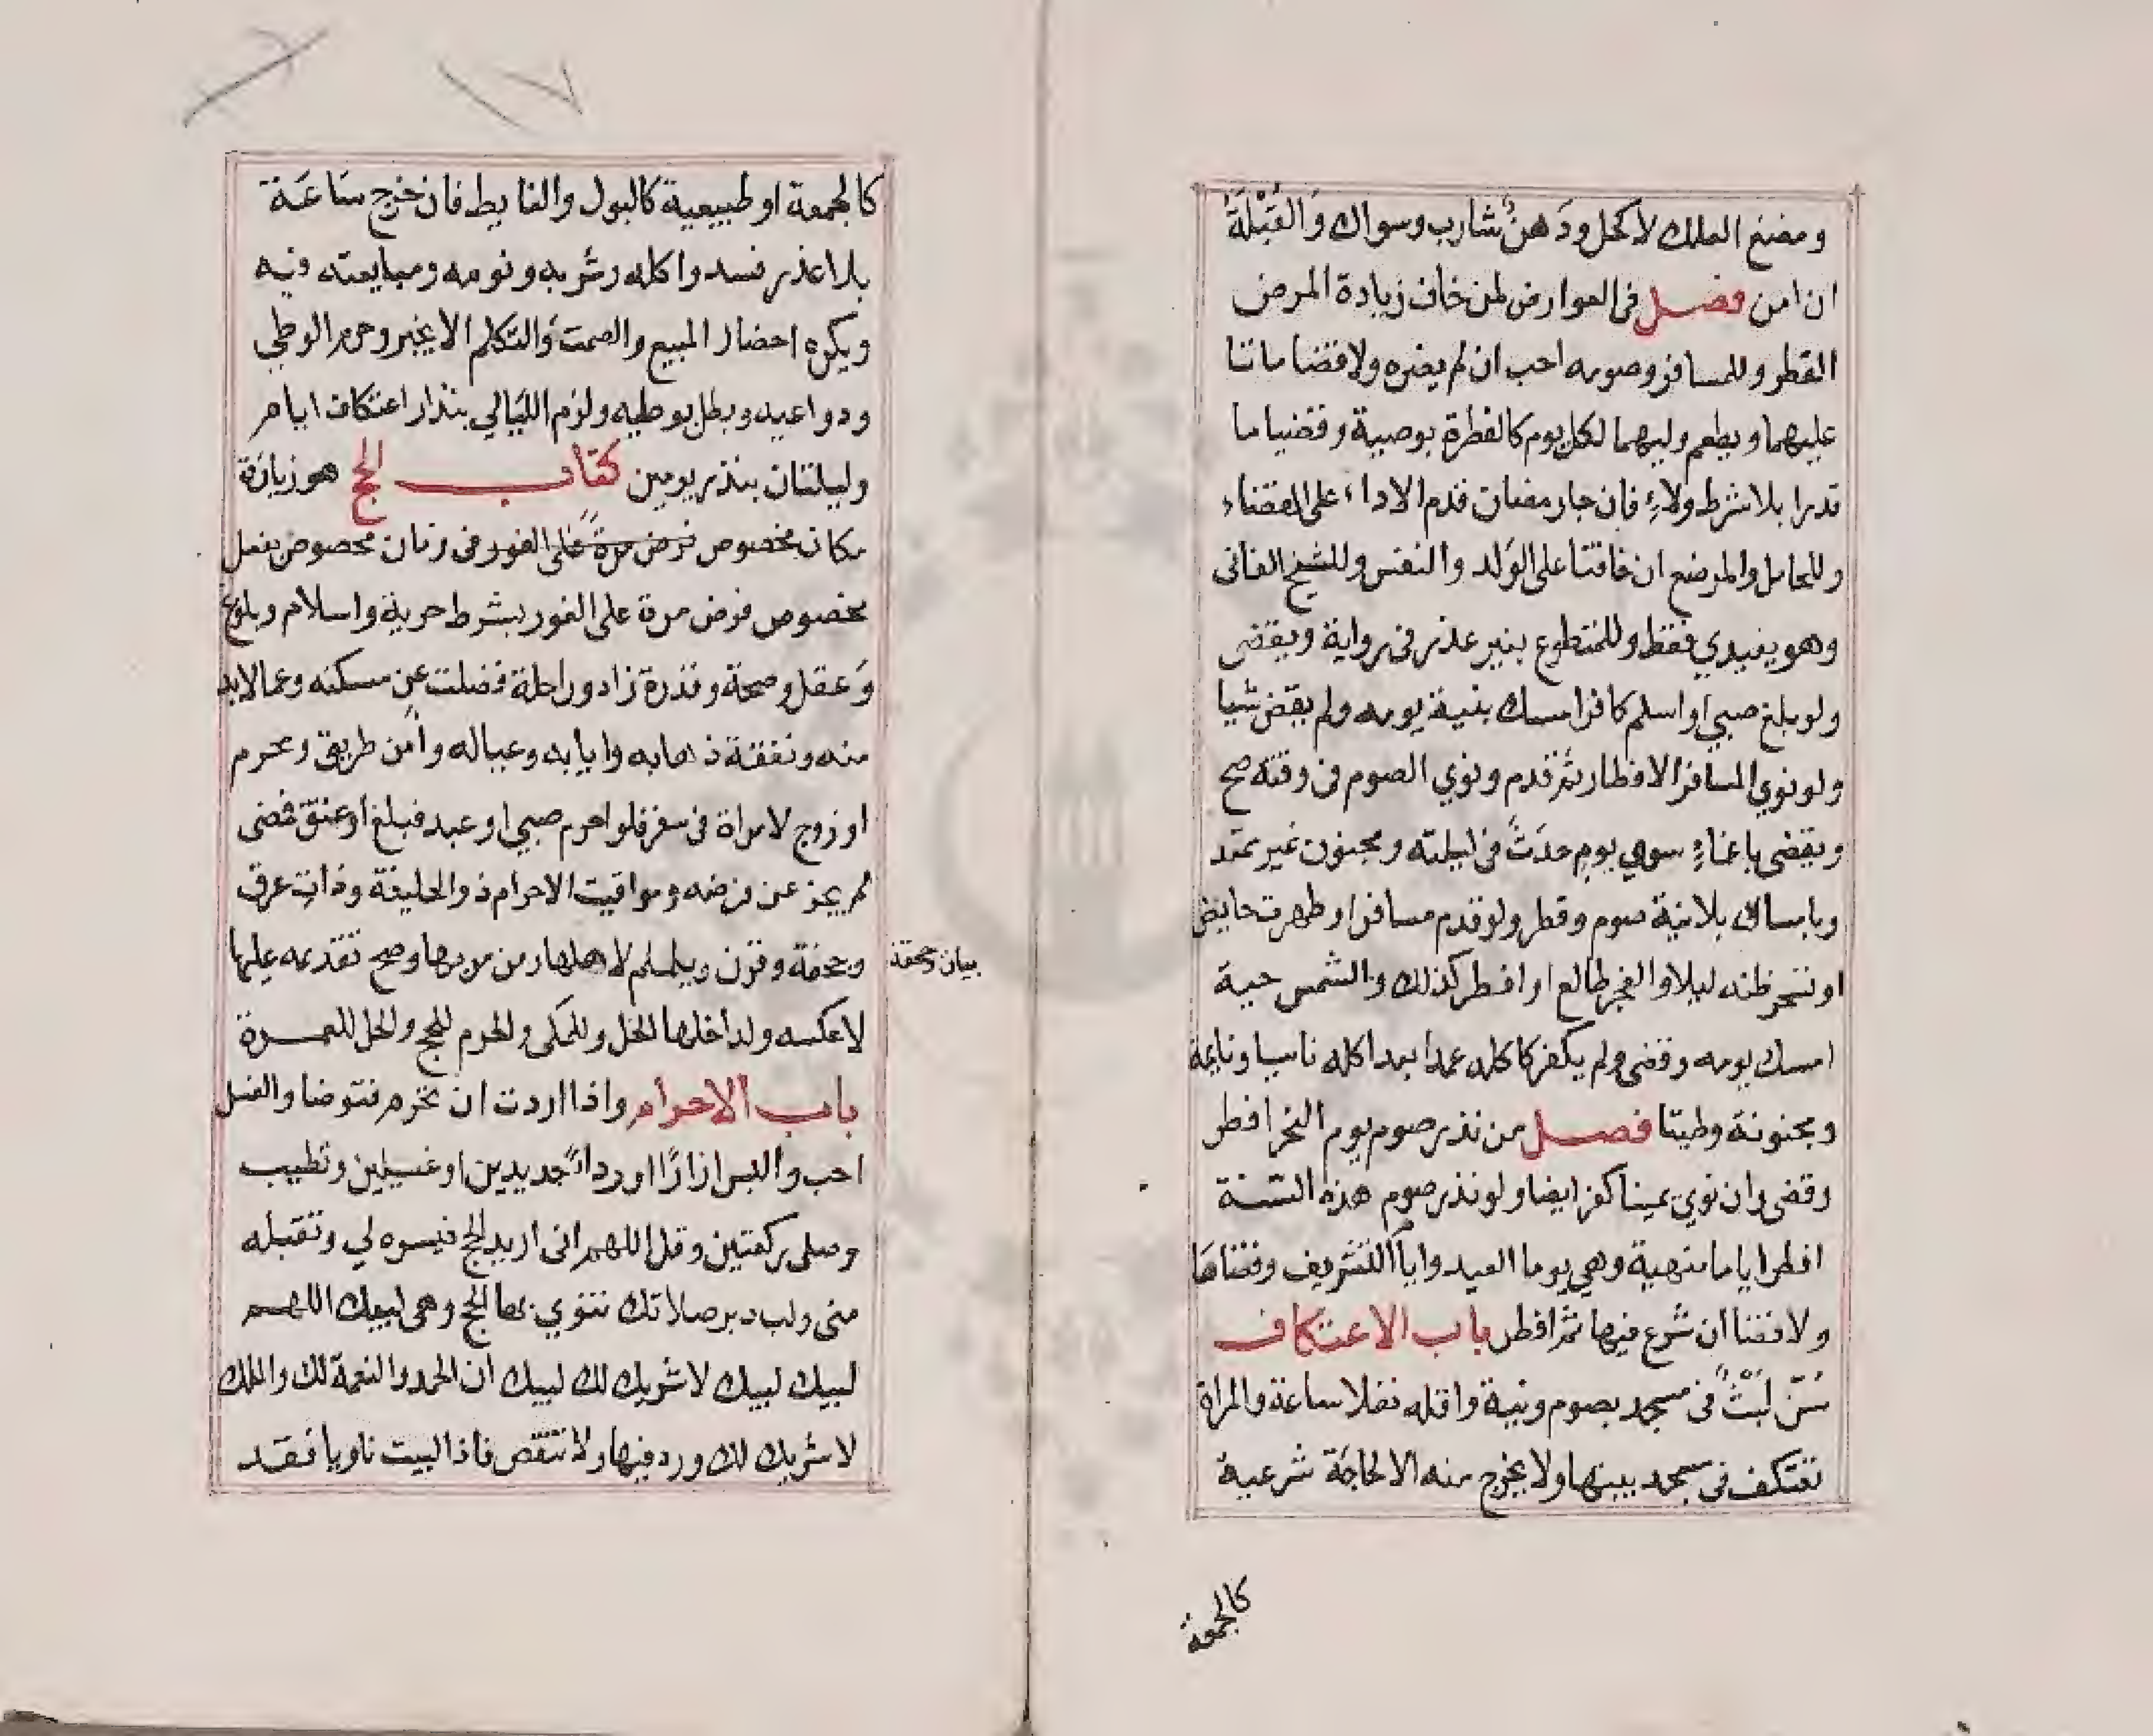 ومضغ العلك لا كحل ودَهنُ شارب وسواك وَالقُبْلَةُ
ان امن فصل فى العوارض لمن خاف زيادة المرض
الفطر وللمسافر وصومه احب ان لم يضره ولا قضا ماتا
عليهما ويطعم وليهما لكل يوم كالفطرة بوصية وقضيا ما
قدرا بلا شرط ولاءٍ فان جا رمضان قدم الاداء على القضاء
وللحامل والمرضع ان خافتا على الوَلد والنفس وللشيخ الفانى
وهو يفيدي فقط وللمتطوع بغير عذر فى رواية ويقضى
ولو بلغ صبي او اسلم كافر امسك بنية يومه ولم يقض شيا
ولو نوي المسافر الافطار ثم قدم ونوي الصوم فى وقته صح
ويقضى باغماءٍ سوي يوم حدَثَ فى ليلته وبجنون غير ممتد
وبامساك بلا نية صوم وفطر ولو قدم مسافر او طهرت حايض
او تسحر ظنه ليلا والفجر طالع او افطر كذلك والشمس حية
امسك يومه وقضى ولم يكفر كاكله عمدا بعد اكله ناسيا ونايمة
ومجنونة وطيتا فصل من نذر صوم يوم النحر افطر
وقضى وان نوي يمينا كفر ايضا ولو نذر صوم هذه السَّنة
افطر اياما منهية وهي يوما العيد وايام التشريف وقضاهَا
ولا قضا ان شرع فيها ثم افطر باب الاعتكاف
سُنّ لُبْثٌ فى مسجد بصوم ونية واقله نفلا ساعة والمراة
تعتكف فى مسجد بيتها ولا يخرج منه الا لحاجة شرعية
كالجمعة
كالجمعة او طبيعية كالبول والغايط فان خرج سَاعَة
بلا عذر فسد واكله وشربه ونومه ومبايعته فيه
ويكره احضار المبيع والصمت وَالتكلم الا بخير وحرم الوطي
ودواعيه وبطل بوطيه ولزم الليَالي بنذر اعتكاف ايام
وليلتان بنذر يومين كتاب الحج هو زيارة
مكان مخصوص فرض مرة على الفور فى زمان مخصوص بفعل
مخصوص فرض مرة على الفور بشرط حرية واسلام وبلوغ
وَعقل وصحة وقدرة زاد وراحلة فضلت عن مسكنه وعما لابد
منه ونفقة ذهابه وايابه وعياله وامن طريق ومحرم
او زوج لامراة فى سفر فلو احرم صبي او عبد فبلغ او عتق فمضى
لم يجز عن فرضه ومواقيت الاحرام ذو الحليفة وذات عرق
وجحفة وقرن ويلملم لاهلها ومن مر بها وصح تقديمه عليها
بيان جحفة
لا عكسه ولداخلها الحل وللمكى والحرم للحج والحل للعمرة
باب الاحرام واذا اردت ان تحرم فتوضا والغسل
احب والبس ازارًا او رداءً جديدين او غسيلين وتطيب
وصلى ركعتين وقل اللهم انى اريد الحج فيسره لي وتقبله
منى ولب دبر صلاتك تنوي بها الحج وهى لبيك اللهم
لبيك لبيك لا شريك لك لبيك ان الحمد والنعمة لك والملك
لا شريك لك وزد فيها ولا تنقص فاذا لبيت ناويا فقد